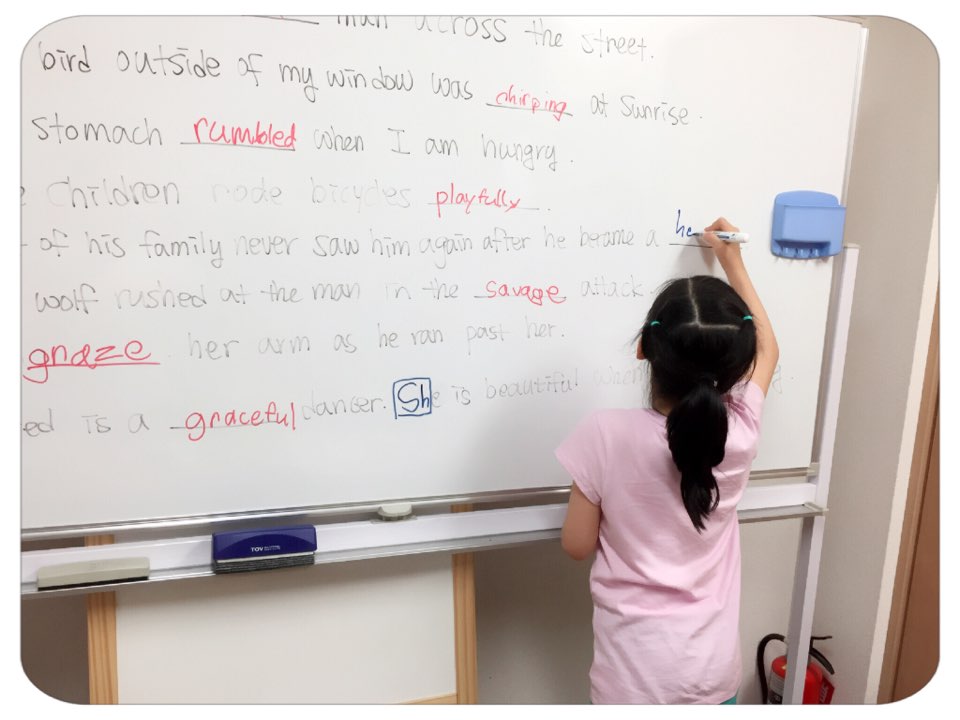 man across the street.
bird outside of my window was chirping at sunrise.
stomach rumbled when I am hungry.
e children rode bicycles playfully.
of his family never saw him again after he became a he
wolf rushed at the man in the savage attack.
graze her arm as he ran past her.
ed is a graceful dancer. She is beautiful when
TOV